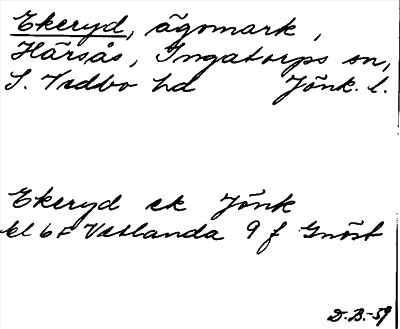 Ekeryd, ägomark,
Härsås, Ingatorps sn,
S. Vedbo hd Jönk. l.
Ekeryd ek Jönk
bl 6F Vetlanda 9 f Gnöst
D.B.-59